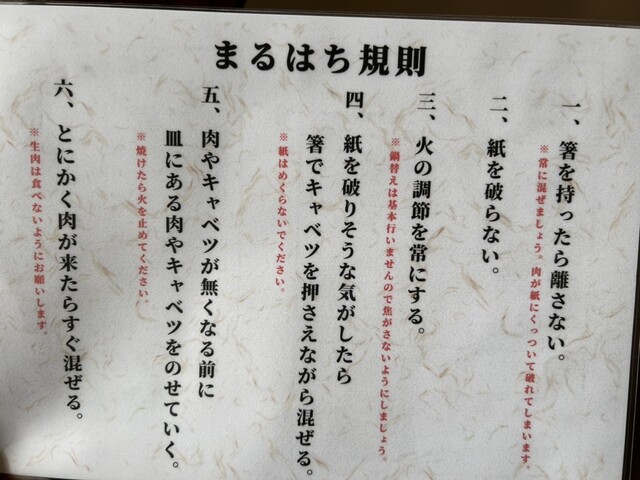 まるはち規則
一、箸を持ったら離さない。
※常に混ぜましょう。肉が紙にくっついて破れてしまいます。
二、紙を破らない。
三、火の調節を常にする。
※鍋替えは基本行いませんので焦がさないようにしましょう。
四、紙を破りそうな気がしたら
箸でキャベツを押さえながら混ぜる。
※紙はめくらないでください。
五、肉やキャベツが無くなる前に
皿にある肉やキャベツをのせていく。
※焼けたら火を止めてください。
六、とにかく肉が来たらすぐ混ぜる。
※生肉は食べないようにお願いします。